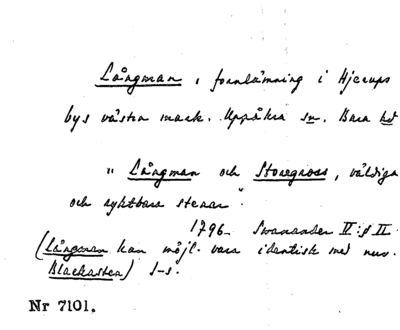 Långman, fornlämning i Hjerups
bys västra mark. Uppåkra sn. Bara hd
"Långman och Storegross, väldiga
och ryktbara stenar".
1796. Swanander IV:s II.
(Långman kan möjl. vara identisk med nuv.
Blackasten) S-s.
Nr 7101.